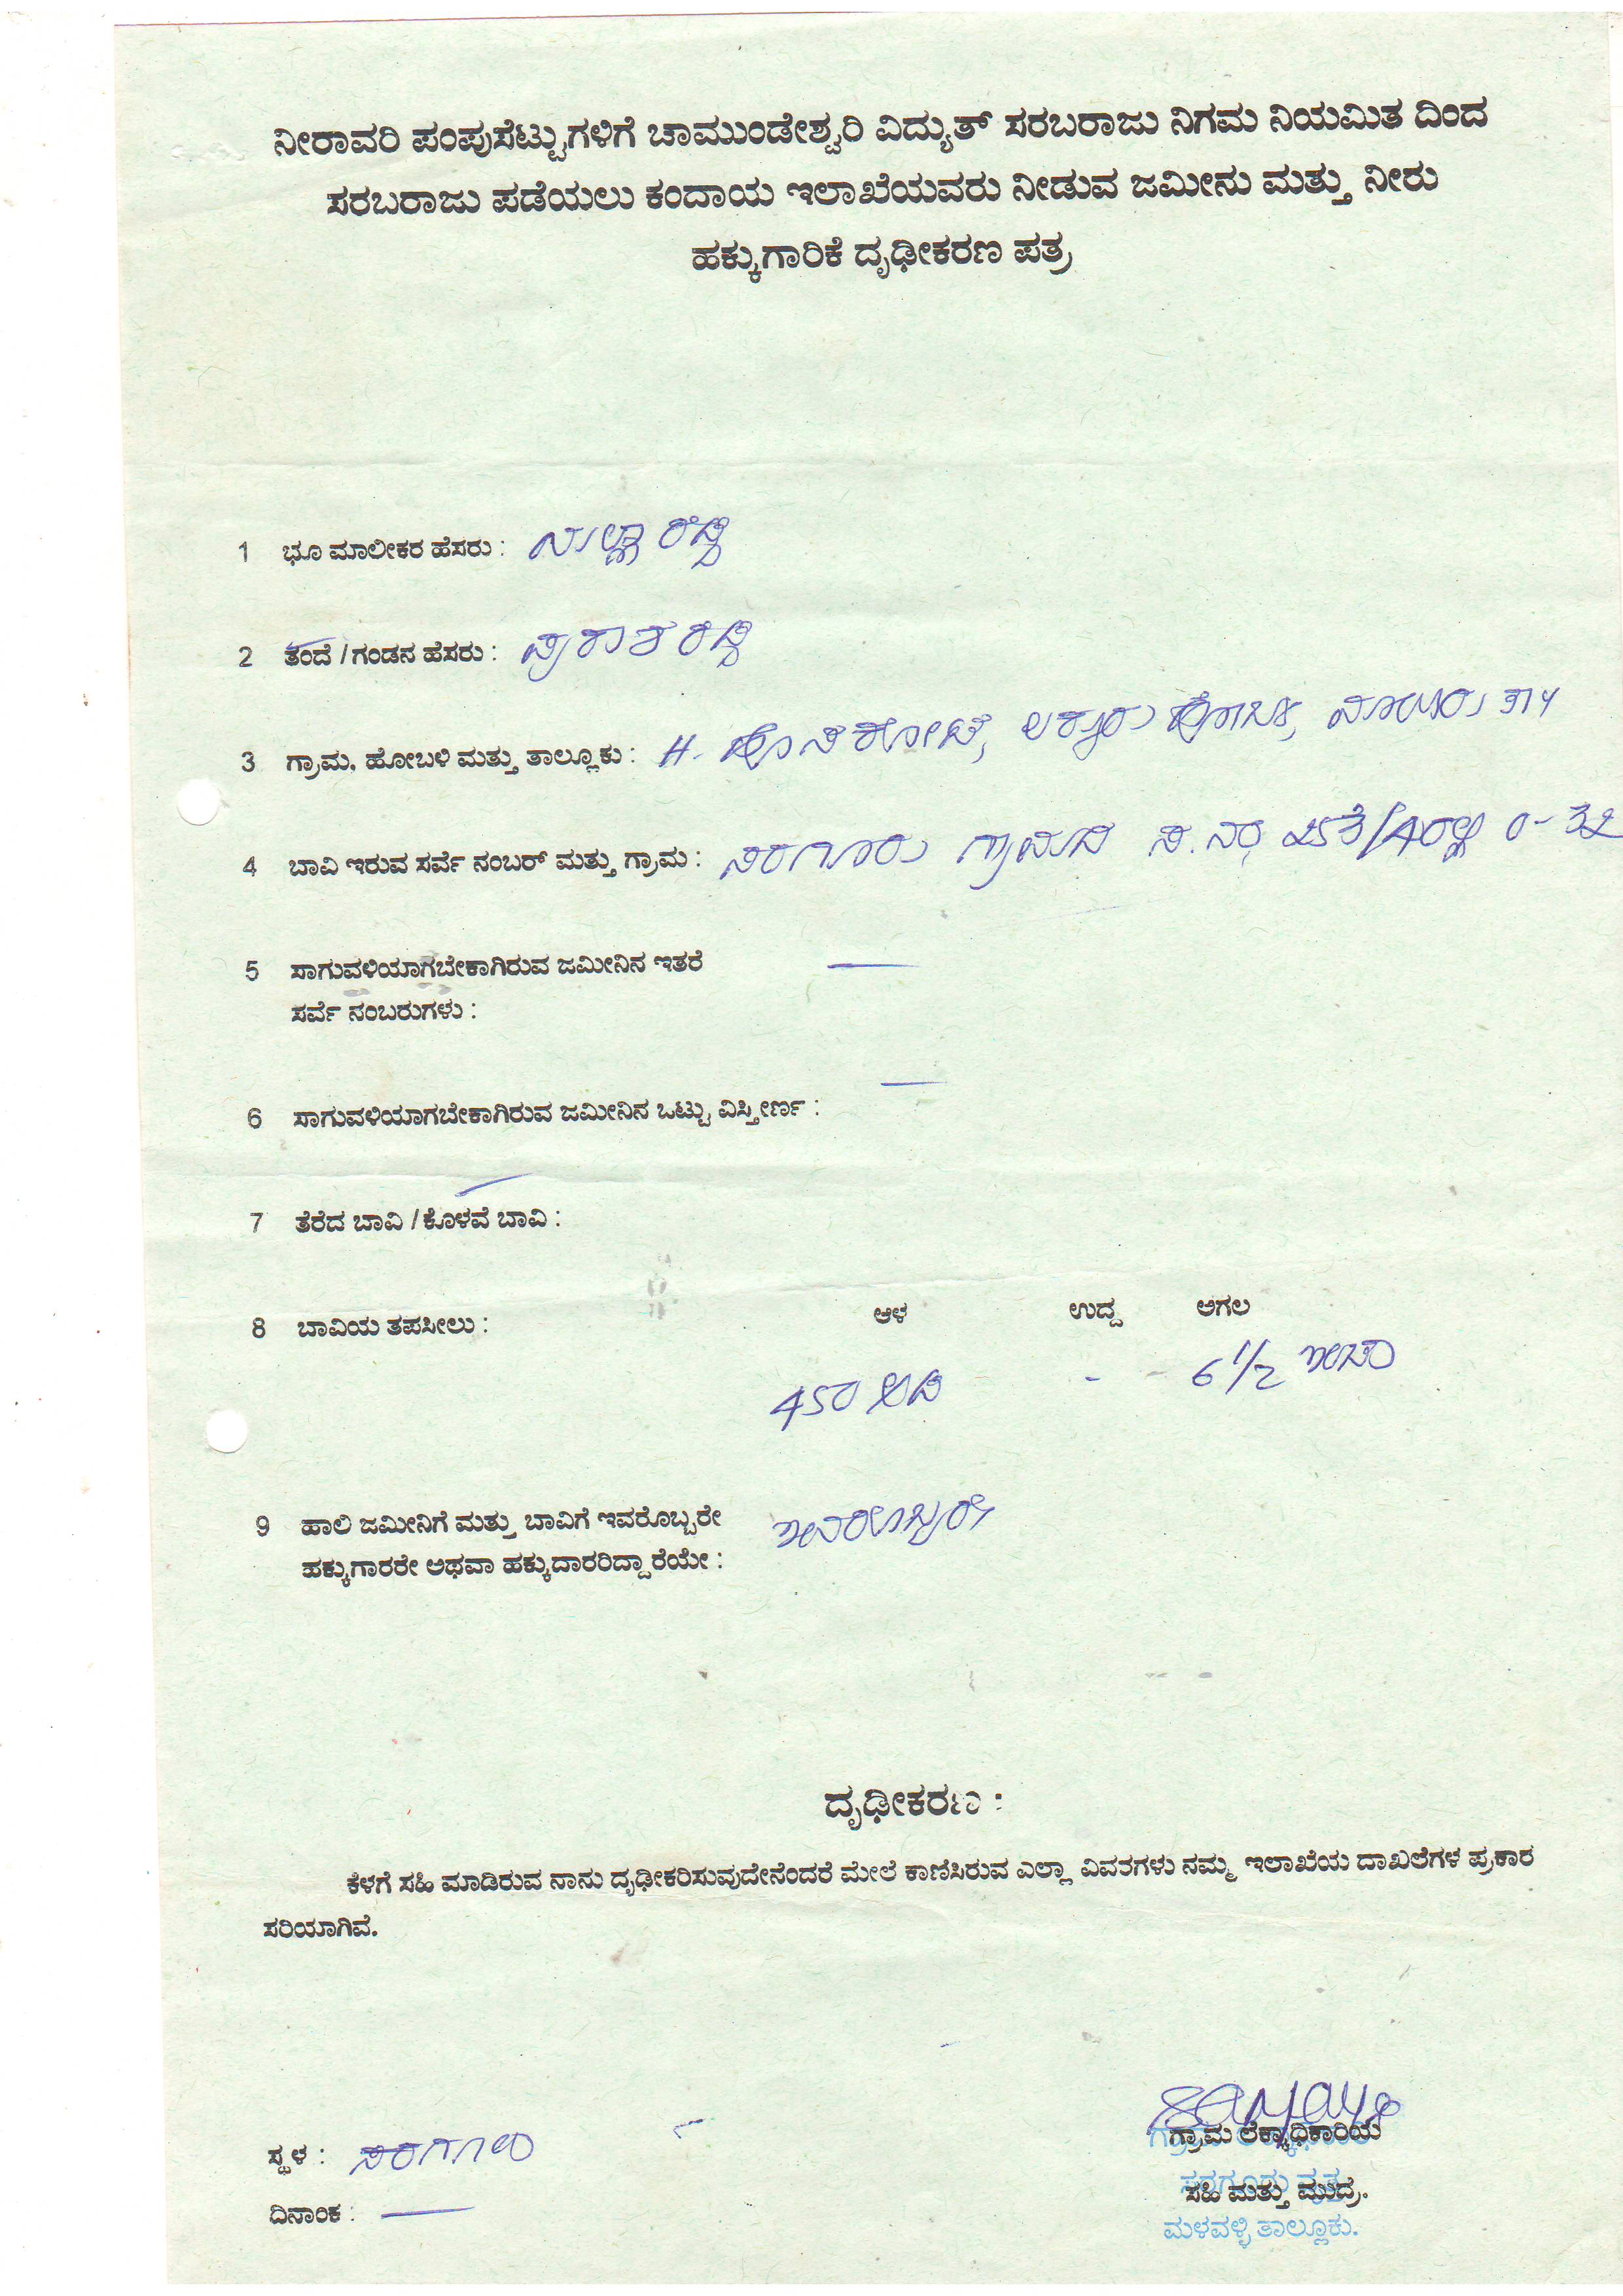 ನೀರಾವರಿ ಪಂಪುಸೆಟ್ಟುಗಳಿಗೆ ಚಾಮುಂಡೇಶ್ವರಿ ವಿದ್ಯುತ್ ಸರಬರಾಜು ನಿಗಮ ನಿಯಮಿತ ದಿಂದ
ಸರಬರಾಜು ಪಡೆಯಲು ಕಂದಾಯ ಇಲಾಖೆಯವರು ನೀಡುವ ಜಮೀನು ಮತ್ತು ನೀರು
ಹಕ್ಕುಗಾರಿಕೆ ದೃಢೀಕರಣ ಪತ್ರ
1 ಭೂ ಮಾಲೀಕರ ಹೆಸರು : ರೆಡ್ಡಿ
2 ತಂದೆ / ಗಂಡನ ಹೆಸರು : ರೆಡ್ಡಿ
3 ಗ್ರಾಮ, ಹೋಬಳಿ ಮತ್ತು ತಾಲ್ಲೂಕು : H.
4 ಬಾವಿ ಇರುವ ಸರ್ವೆ ನಂಬರ್ ಮತ್ತು ಗ್ರಾಮ : ಸರಗೂರು ಗ್ರಾಮದ ಸ. ನಂ 0-32
5 ಸಾಗುವಳಿಯಾಗಬೇಕಾಗಿರುವ ಜಮೀನಿನ ಇತರೆ
ಸರ್ವೆ ನಂಬರುಗಳು :
6 ಸಾಗುವಳಿಯಾಗಬೇಕಾಗಿರುವ ಜಮೀನಿನ ಒಟ್ಟು ವಿಸ್ತೀರ್ಣ :
7 ತೆರೆದ ಬಾವಿ / ಕೊಳವೆ ಬಾವಿ :
8 ಬಾವಿಯ ತಪಸೀಲು : ಆಳ ಉದ್ದ ಅಗಲ
450 ಅಡಿ - 6 1/2 ಇಂಚು
9 ಹಾಲಿ ಜಮೀನಿಗೆ ಮತ್ತು ಬಾವಿಗೆ ಇವರೊಬ್ಬರೇ ಇವರೊಬ್ಬರೇ
ಹಕ್ಕುಗಾರರೇ ಅಥವಾ ಹಕ್ಕುದಾರರಿದ್ದಾರೆಯೇ :
ದೃಢೀಕರಣ :
ಕೆಳಗೆ ಸಹಿ ಮಾಡಿರುವ ನಾನು ದೃಢೀಕರಿಸುವುದೇನೆಂದರೆ ಮೇಲೆ ಕಾಣಿಸಿರುವ ಎಲ್ಲಾ ವಿವರಗಳು ನಮ್ಮ ಇಲಾಖೆಯ ದಾಖಲೆಗಳ ಪ್ರಕಾರ
ಸರಿಯಾಗಿವೆ.
ಸ್ಥಳ : ಸರಗೂರು
ಗ್ರಾಮ ಲೆಕ್ಕಾಧಿಕಾರಿಯ
ಸರಗೂರು ವೃತ್ತ
ಸಹಿ ಮತ್ತು ಮುದ್ರೆ.
ದಿನಾಂಕ :
ಮಳವಳ್ಳಿ ತಾಲ್ಲೂಕು.